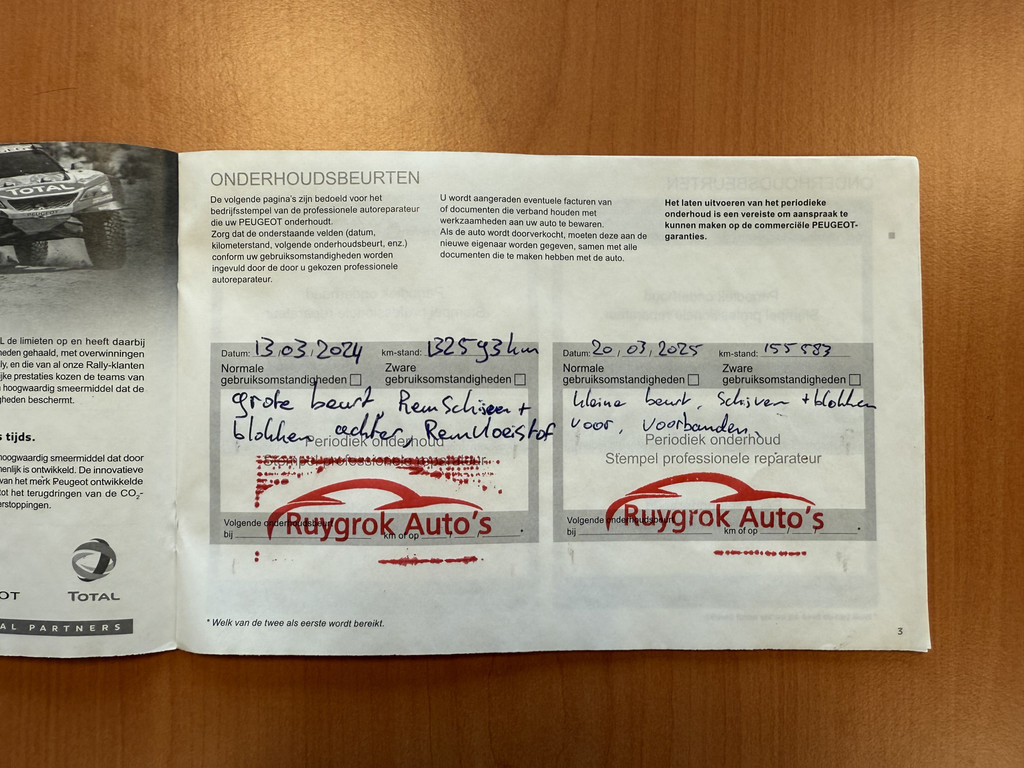 TOTAL
PEUGEOT
L de limieten op en heeft daarbij
eden gehaald, met overwinningen
ly, en die van al onze Rally-klanten
ijke prestaties kozen de teams van
hoogwaardig smeermiddel dat de
gheden beschermt.
s tijds.
hoogwaardig smeermiddel dat door
enlijk is ontwikkeld. De innovatieve
van het merk Peugeot ontwikkelde
tot het terugdringen van de CO₂-
erstoppingen.
OT
TOTAL
AL PARTNERS
ONDERHOUDSBEURTEN
De volgende pagina's zijn bedoeld voor het
bedrijfsstempel van de professionele autoreparateur
die uw PEUGEOT onderhoudt.
Zorg dat de onderstaande velden (datum,
kilometerstand, volgende onderhoudsbeurt, enz.)
conform uw gebruiksomstandigheden worden
ingevuld door de door u gekozen professionele
autoreparateur.
U wordt aangeraden eventuele facturen van
of documenten die verband houden met
werkzaamheden aan uw auto te bewaren.
Als de auto wordt doorverkocht, moeten deze aan de
nieuwe eigenaar worden gegeven, samen met alle
documenten die te maken hebben met de auto.
Het laten uitvoeren van het periodieke
onderhoud is een vereiste om aanspraak te
kunnen maken op de commerciële PEUGEOT-
garanties.
Datum: 13/03/2024 km-stand: 132593 km
Normale
gebruiksomstandigheden
Zware
gebruiksomstandigheden
grote beurt, Remschijven +
blokken achter, Remvloeistof
Periodiek onderhoud
Stempel professionele reparateur
Ruygrok Auto's
Volgende onderhoudsbeurt
bij km of op / / *
Datum: 20/03/2025 km-stand: 155583
Normale
gebruiksomstandigheden
Zware
gebruiksomstandigheden
kleine beurt, Schijven + blokken
voor, voorbanden.
Periodiek onderhoud
Stempel professionele reparateur
Ruygrok Auto's
Volgende onderhoudsbeurt
bij km of op / / *
* Welk van de twee als eerste wordt bereikt.
3